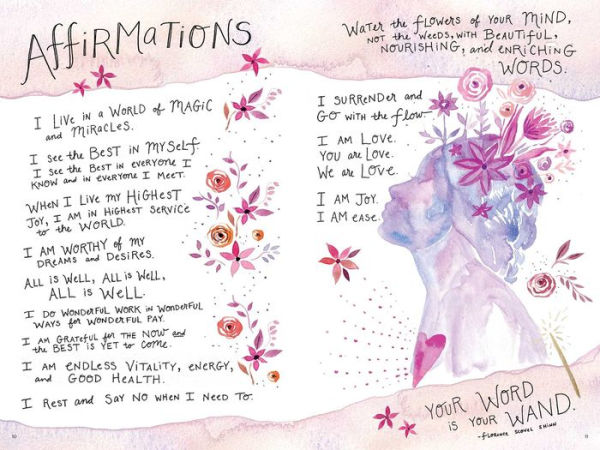 AFFIRMATIONS
I LIVE in a WORLD of MAGIC
and MIRACLES.
I see the BEST IN MYSELF.
I see the BEST in everyone I
KNOW and in everyone I MEET.
WHEN I LIVE my HIGHEST
JOY, I AM IN HIGHEST SERVICE
to the WORLD.
I AM WORTHY of my
DREAMS and DESIRES.
ALL is WELL, ALL is WELL,
ALL is WELL.
I DO WONDERFUL WORK in WONDERFUL
WAYS for WONDERFUL PAY.
I AM GRATEFUL for THE NOW and
the BEST is YET to COME.
I AM ENDLESS VITALITY, ENERGY,
and GOOD HEALTH.
I REST and SAY NO WHEN I NEED TO.
10
WATER the FLOWERS of YOUR MIND,
NOT the WEEDS, WITH BEAUTIFUL,
NOURISHING, and ENRICHING
WORDS.
I SURRENDER and
GO WITH the flow.
I AM LOVE.
YOU are LOVE.
We are LOVE.
I AM JOY.
I AM ease.
YOUR WORD
IS YOUR WAND.
-FLORENCE SCOVEL SHINN
11